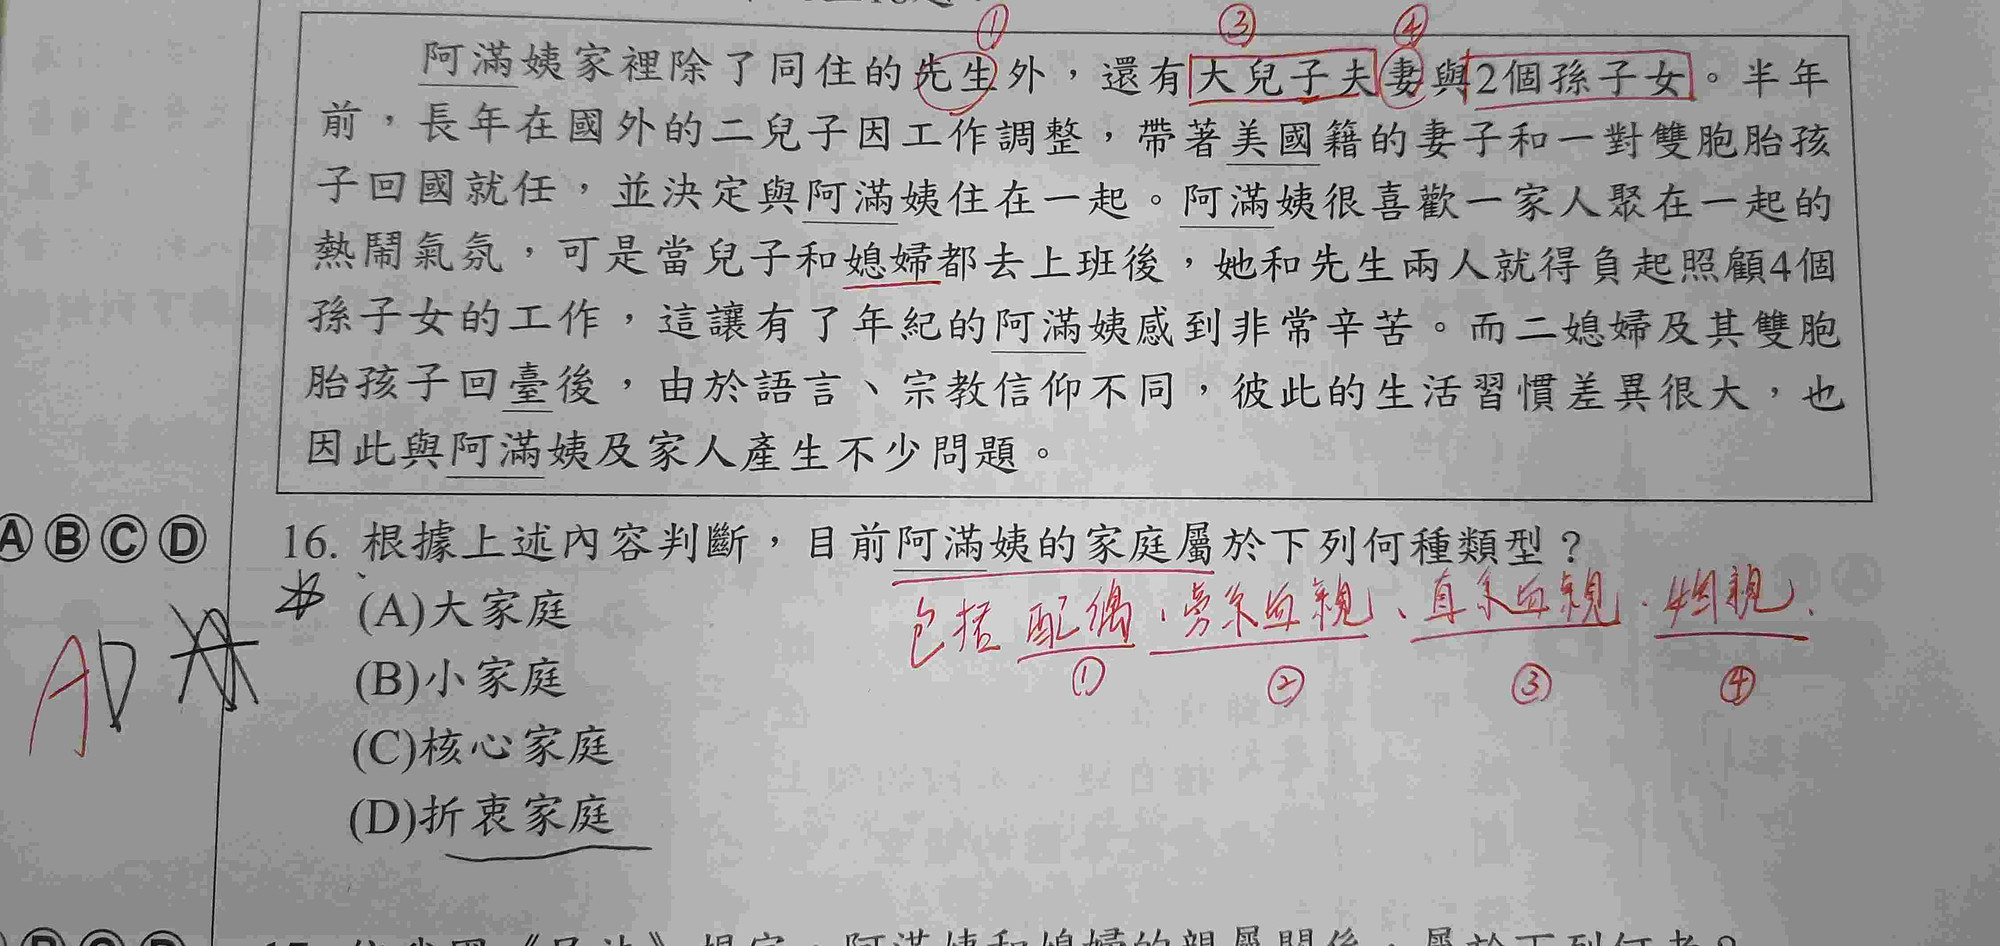 ① ③ ④
阿滿姨家裡除了同住的先生外，還有大兒子夫妻與2個孫子女。半年
前，長年在國外的二兒子因工作調整，帶著美國籍的妻子和一對雙胞胎孩
子回國就任，並決定與阿滿姨住在一起。阿滿姨很喜歡一家人聚在一起的
熱鬧氣氛，可是當兒子和媳婦都去上班後，她和先生兩人就得負起照顧4個
孫子女的工作，這讓有了年紀的阿滿姨感到非常辛苦。而二媳婦及其雙胞
胎孩子回臺後，由於語言、宗教信仰不同，彼此的生活習慣差異很大，也
因此與阿滿姨及家人產生不少問題。
ⒶⒷⒸⒹ 16. 根據上述內容判斷，目前阿滿姨的家庭屬於下列何種類型？
包括配偶、旁系血親、直系血親、姻親.
① ② ③ ④
(A)大家庭
(B)小家庭
AD
(C)核心家庭
(D)折衷家庭